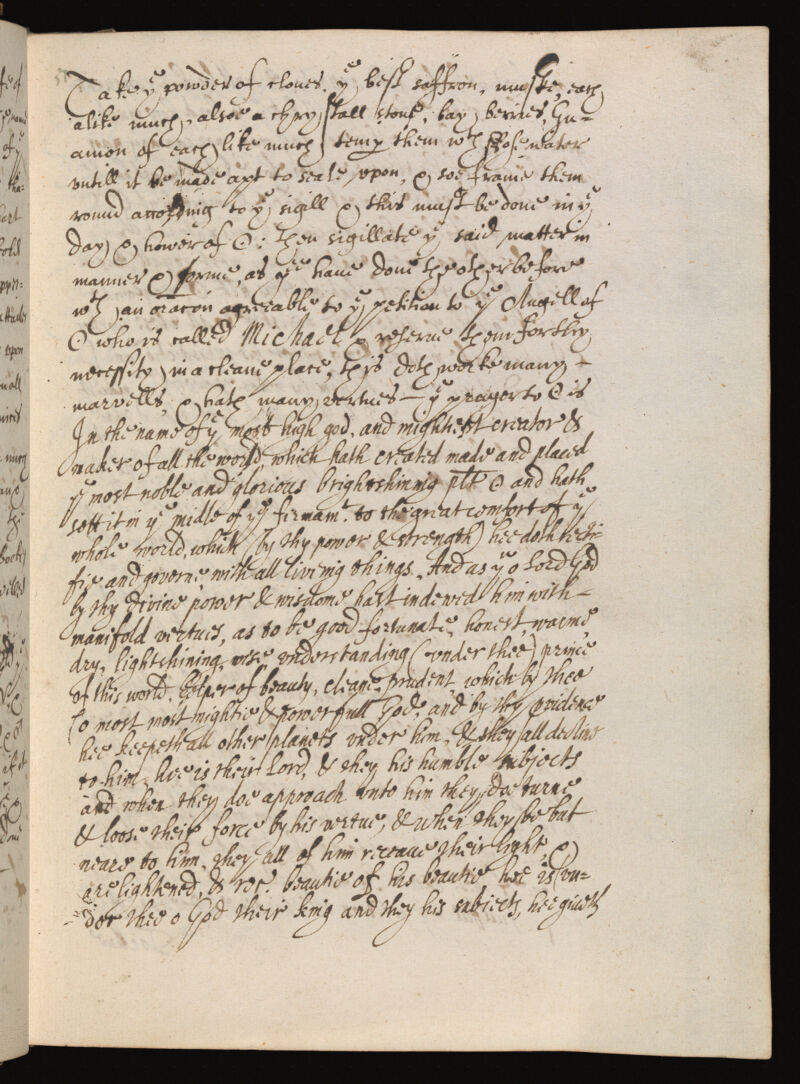 Take yᵉ powder of cloves, yᵉ best saffron, muske, each
alike much, alsoe a chrystall stone, bay berries, Gu-
amon of each like much, temp them wᵗʰ Rosewater
untill it be made apt to seale upon, & soe frame them
round according to yᵉ sigill & this must be done in yᵉ
day & hower of ☉: then sigillate yᵉ said matter in
manner & forme, as yᵉ have done the other before
wᵗʰ an oracon agreeable to yᵉ petition to yᵉ Angell of
☉ who is called Michael & reserve them for thy
necessity in a cleane place, this doth worke many
marvells, & hath many vertues — yᵉ prayer to ☉ is
In the name of yᵉ most high god, and mightest creator &
maker of all the world, which hath created made and placed
yᵉ most noble and glorious bright shinnig plt ☉ and hath
sett it in yᵉ midle of yᵉ firmamᵗ. to the great comfort of yᵉ
whole world, which (by thy power & strength) hee doth recti-
fie and governe with all livenig things. And as yᵘ o Lord God
by thy divine power & wisdome hast indewed him with
manifold vertues, as to be good fortunate, honest, warme,
dry, lightshining, wise understanding (under thee) prince
of this world, helper of beauty, cleane, prudent, which by thee
(o most most mightie & powerfull God, and by thy providence
hee keepeth all other planets under him, & they all decline
to him, hee is their Lord, & they his humble subjects
and when they doe approach unto him they doe turne
& loose their force by his vertue, & when they be but
neare to him, they all of him receave their light &
are lightened, & rec: beautie of his beautie hee is (un-
der thee o God their king and they his subjects, hee giveth